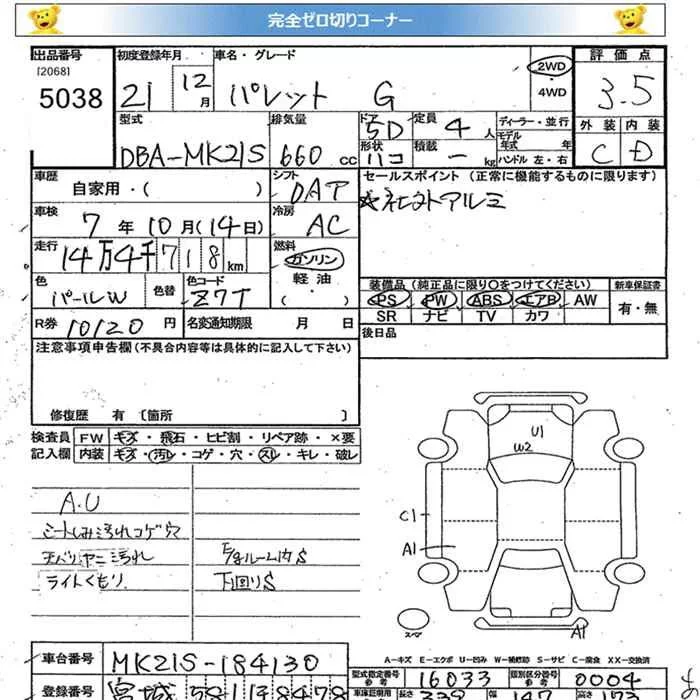 完全ゼロ切りコーナー
出品番号
[2068]
5038
初度登録年月
21 12月
車名・グレード
パレット G
2WD
・4WD
評価点
3.5
外装 内装
C D
型式
DBA-MK21S
排気量
660 cc
ドア
5D
形状
ハコ
定員
4 人
積載
ー kg
ディーラー・並行
モデル
年式 年
ハンドル 左・右
車歴
自家用・( )
シフト
DAT
セールスポイント (正常に機能するものに限ります)
☆社外アルミ
車検
7年10月(14日)
冷房
AC
走行
14万4千718km
燃料
ガソリン
軽油
・( )
色
パールW
色替
色コード
Z7T
装備品 (純正品に限り〇をつけてください)
PS PW ABS エアB AW
SR ナビ TV カワ
新車保証書
有・無
R券
10120 円
名変通知期限 月 日
後日品
注意事項申告欄 (不具合内容等は具体的に記入して下さい)
修復歴 有 [箇所 ]
検査員
記入欄
FW キズ・飛石・ヒビ割・リペア跡・×要
内装 キズ・汚レ・コゲ・穴・スレ・キレ・破レ
A.U
シートしみ汚れコゲ穴
天バリヤニ汚れ
ライトくもり
下回りS
U1
W2
C1
A1
A1
スペア
A-キズ E-エクボ U-凹み W-補修跡 S-サビ C-腐食 XX-交換済
車台番号
MK21S-184130
型式指定番号
参考
16033
類別区分番号
参考
0004
登録番号
宮城 581 118478
車庫証明用
長さ 339 幅 147 高さ 173